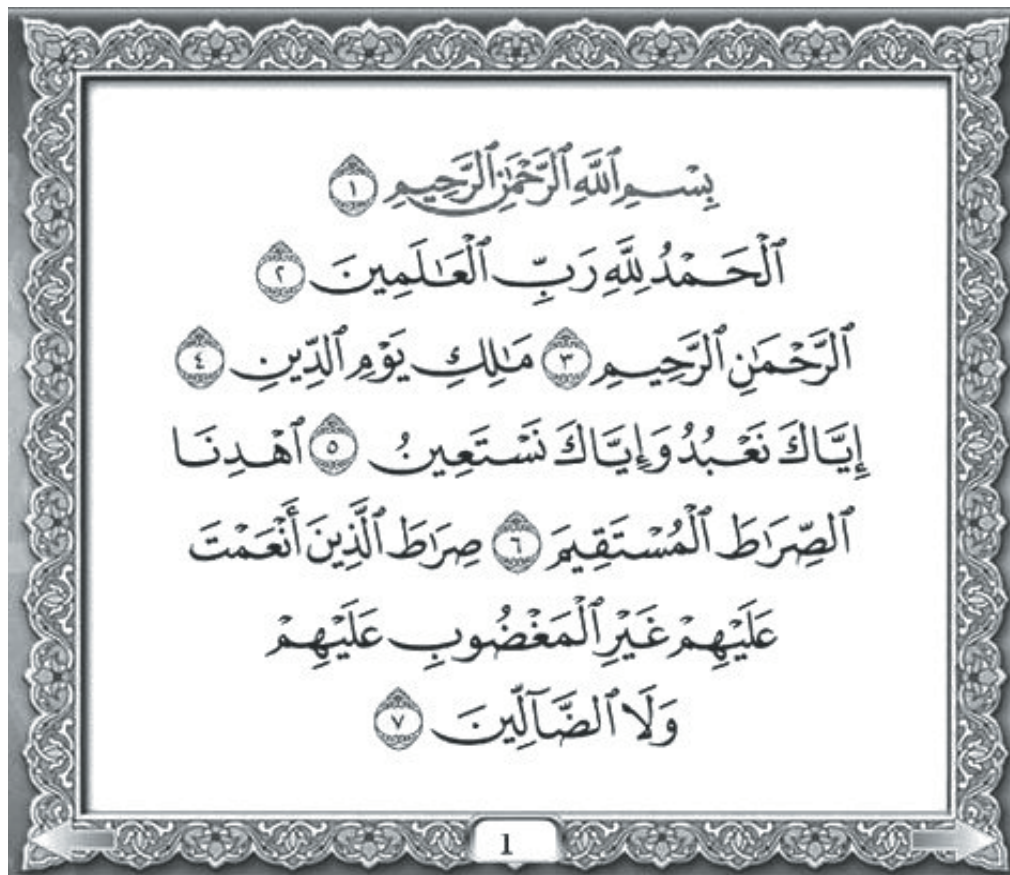 بِسْمِ ٱللَّهِ ٱلرَّحْمَٰنِ ٱلرَّحِيمِ ١
ٱلْحَمْدُ لِلَّهِ رَبِّ ٱلْعَٰلَمِينَ ٢
ٱلرَّحْمَٰنِ ٱلرَّحِيمِ ٣ مَٰلِكِ يَوْمِ ٱلدِّينِ ٤
إِيَّاكَ نَعْبُدُ وَإِيَّاكَ نَسْتَعِينُ ٥ ٱهْدِنَا
ٱلصِّرَٰطَ ٱلْمُسْتَقِيمَ ٦ صِرَٰطَ ٱلَّذِينَ أَنْعَمْتَ
عَلَيْهِمْ غَيْرِ ٱلْمَغْضُوبِ عَلَيْهِمْ
وَلَا ٱلضَّآلِّينَ ٧
1